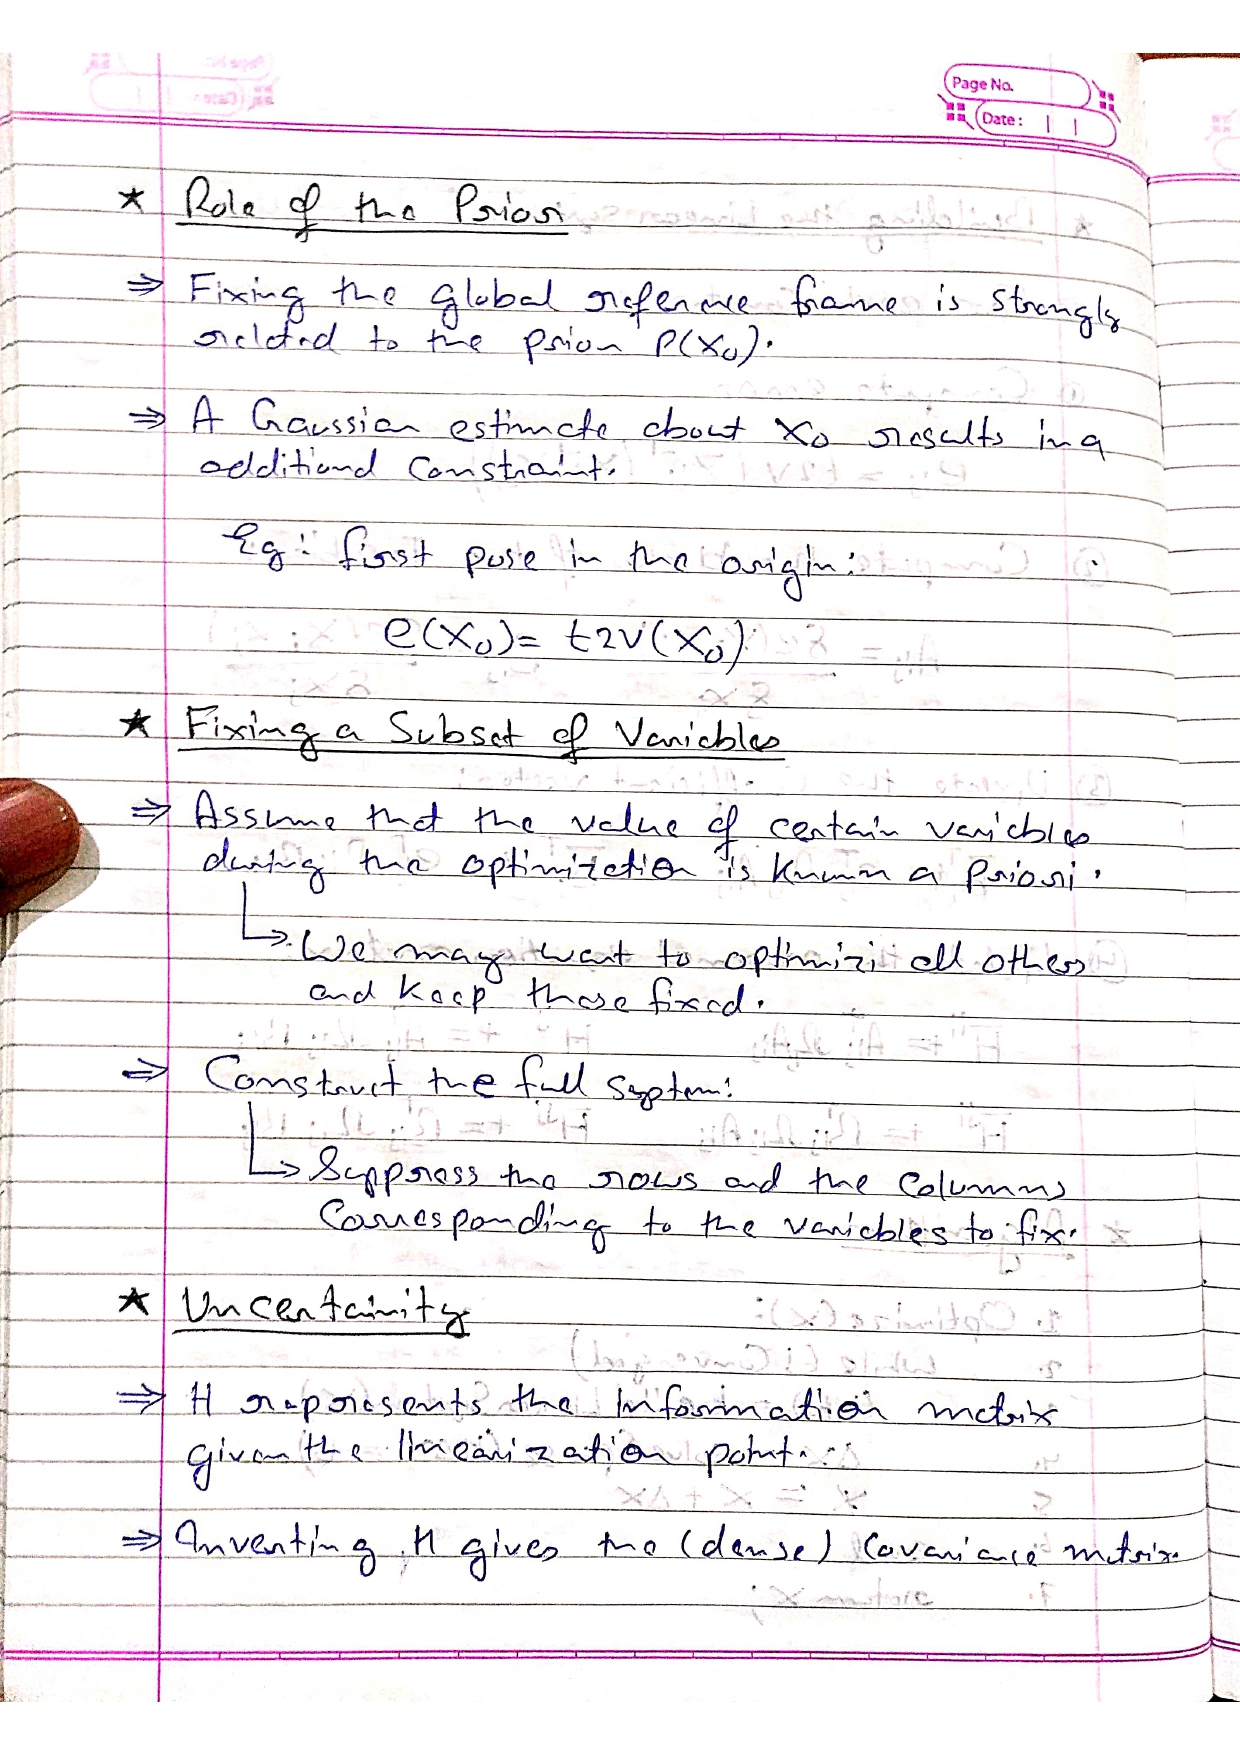 Page No.
Date: | |
★ Role of the Prior
⇒ Fixing the global reference frame is strongly
related to the prior P(X₀).
⇒ A Gaussian estimate about X₀ results in a
additional constraint.
Eg: first pose in the origin:
e(X₀) = t2v(X₀)
★ Fixing a Subset of Variables
⇒ Assume that the value of certain variables
during the optimization is known a priori.
↳ We may want to optimizi all others
and keep those fixed.
⇒ Construct the full system:
↳ Suppress the rows and the columns
corresponding to the variables to fix.
★ Uncertainity
⇒ H represents the information matrix
given the linearization point.
⇒ Inverting H gives the (dense) covariance matrix.